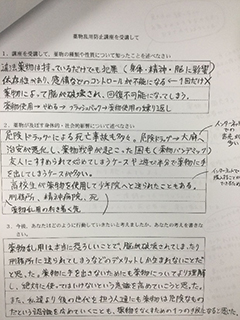 薬物乱用防止講座を受講して
1．講座を受講して、薬物の種類や性質について知ったことを述べなさい
違法薬物は持っているだけでも犯罪（身体・精神・脳に影響
依存性があり、危険なのでコントロールが不可能になる→1回だけ✕
薬物によって脳が破壊され、回復不可能になってしまう。
薬物使用→やめる→フラッシュバック→薬物使用の繰り返し
2．薬物が及ぼす身体的・社会的影響について述べなさい
危険ドラッグによる死亡事故も多く。危険ドラッグ→大麻
治安が悪化し、薬物戦争が起こった国も
友人にすすめられて始めてしまうケースや
を出してしまうケースが多い。
高校生が薬物を使用して少年院へと送られたこともある。
刑務所、精神病院、死
薬物乱用の行き着く先
3．今後、あなたはどのように行動していきたいと考えましたか。あなたの考えを書きなさい。
薬物乱用は本当に恐ろしいことで、脳が破壊されてしまったり
刑務所に送られてしまうなどのデメリットしかうまれないことだ
と思った。薬物に手を出さないためにも薬物についてより理解
し、絶対に使ってはいけないという意識を高めていこうと思った。
また、私達より後の世代を担う人達にも薬物は危険なもの
だという認識を広めていくことも、薬物をなくすための1つの